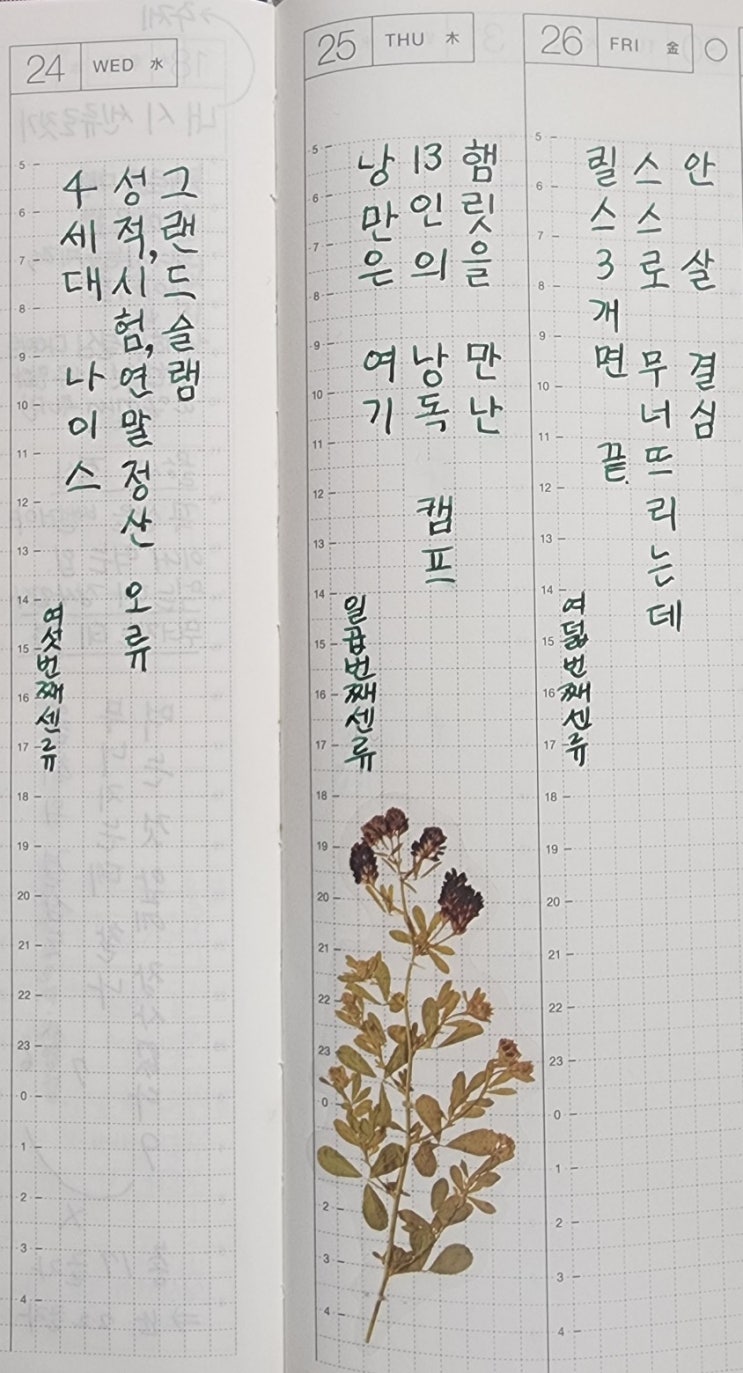 24 WED 水
그랜드슬램
성적,시험,연말정산 오류
4세대 나이스
여섯번째센류
25 THU 木
햄릿을 만난
13인의 낭독 캠프
낭만은 여기
일곱번째센류
26 FRI 金
안 살 결심
스스로 무너뜨리는데
릴스3개면 끝.
여덟번째센류
5
6
7
8
9
10
11
12
13
14
15
16
17
18
19
20
21
22
23
0
1
2
3
4
5
6
7
8
9
10
11
12
13
14
15
16
17
18
19
20
21
22
23
0
2
3
4
5
6
7
8
9
10
11
12
13
14
15
16
17
18
19
20
21
22
23
0
1
2
3
4